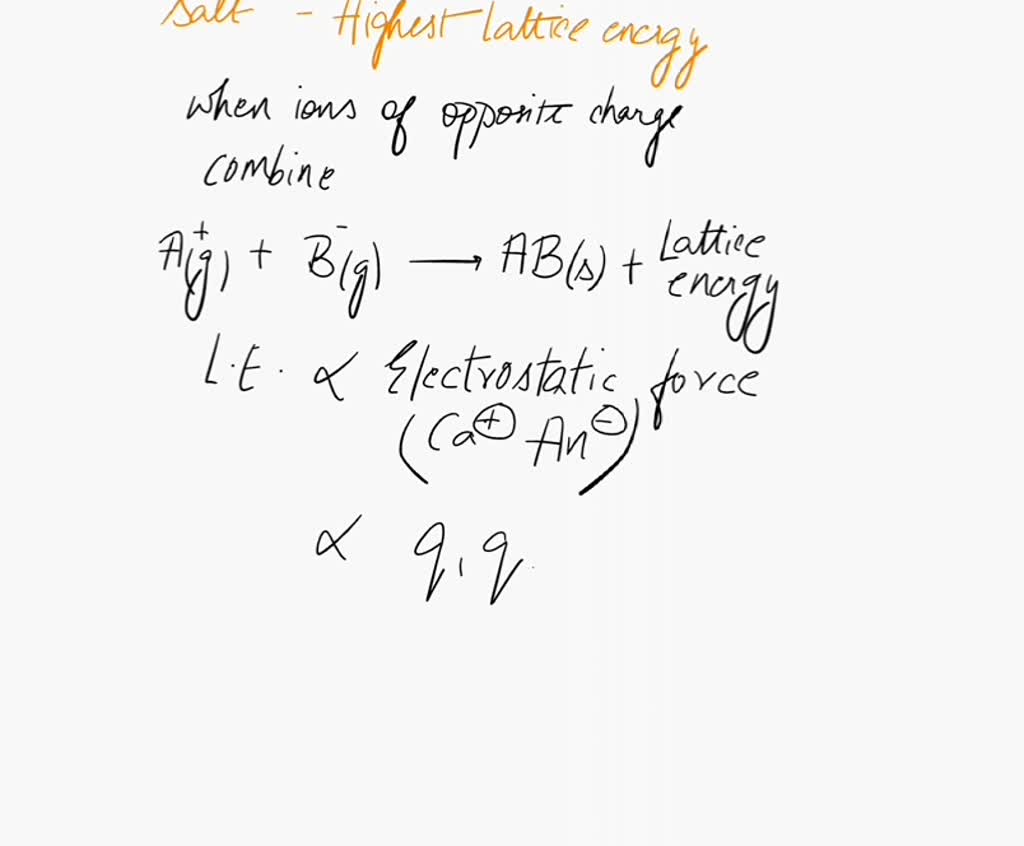 Salt - Highest lattice energy
when ions of opposite charge
combine
A⁺(g) + B⁻(g) ⟶ AB(s) + Lattice energy
L.E. ∝ Electrostatic force
(Ca⊕ An⊖)
∝ q₁q